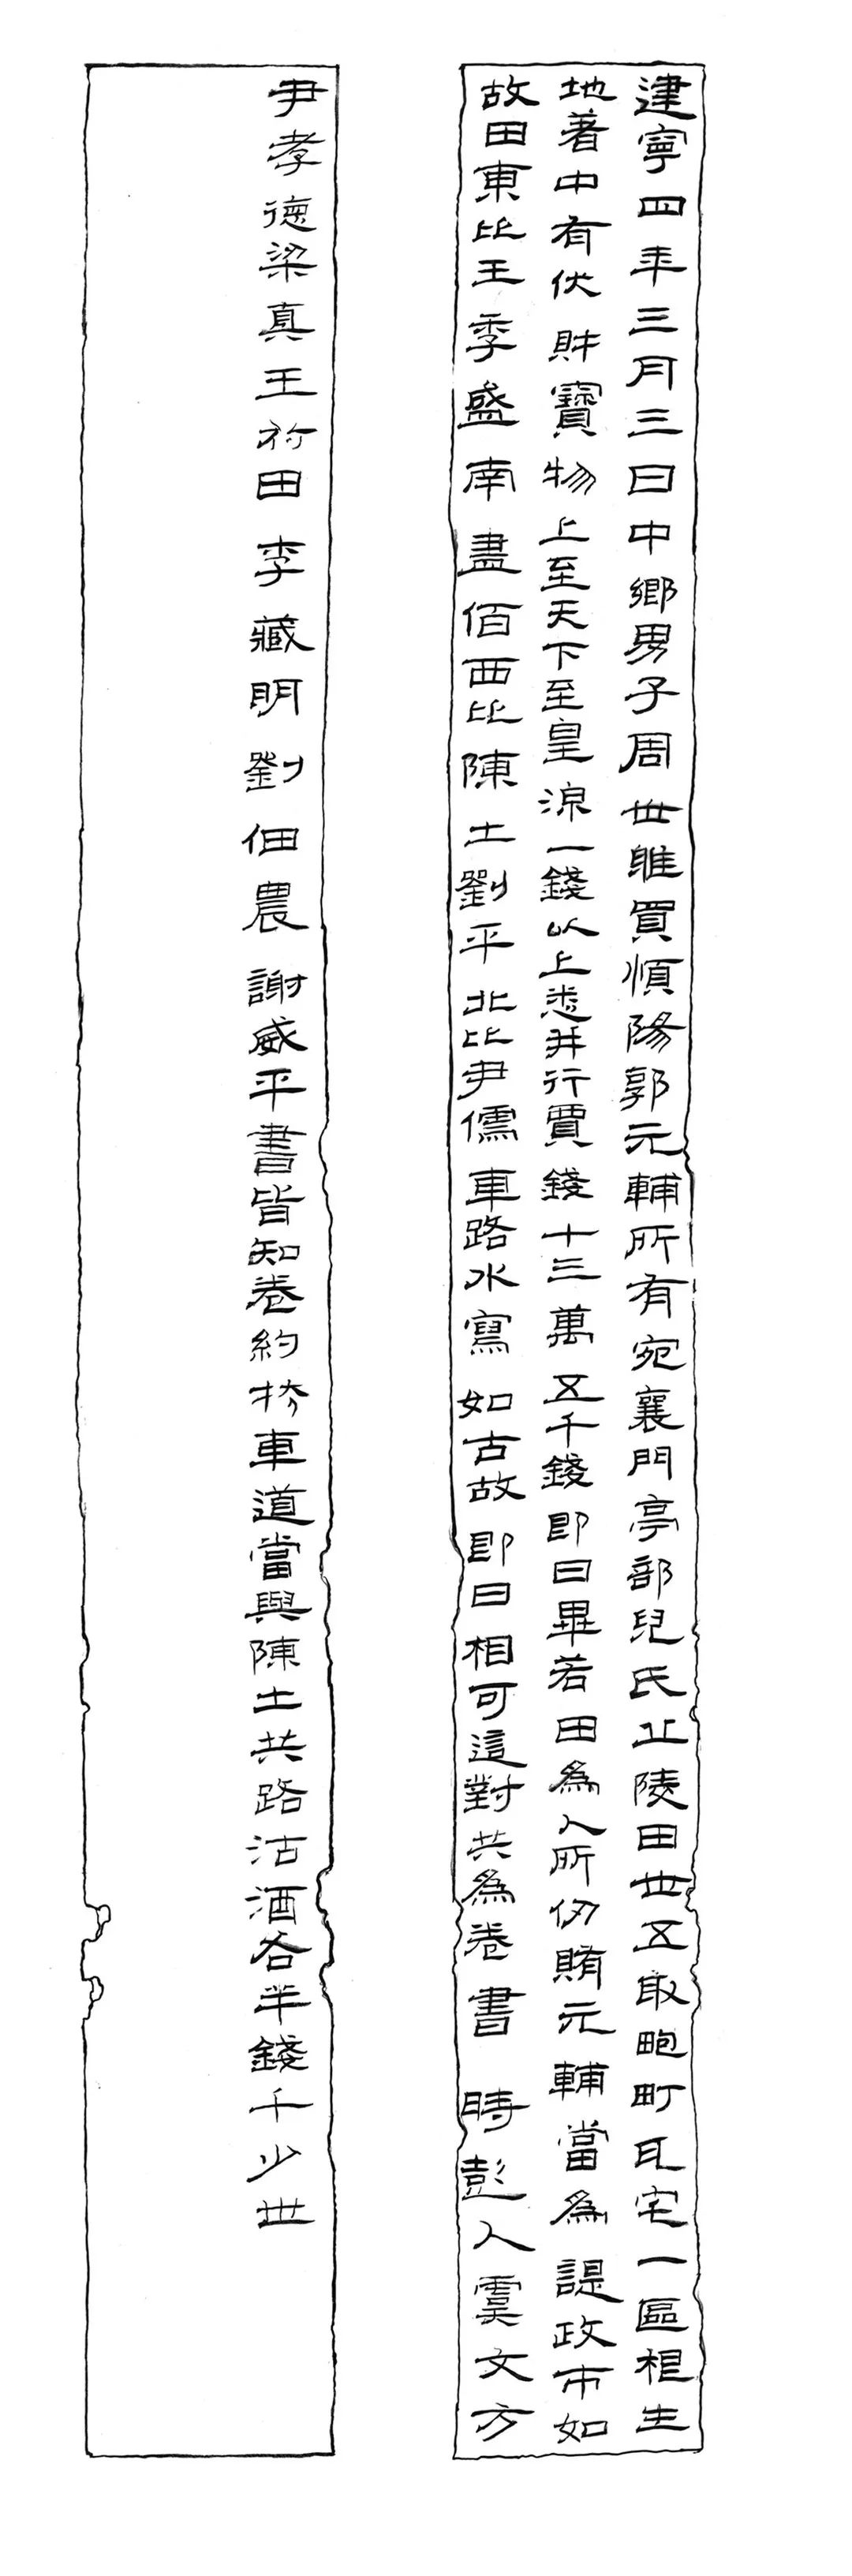 建寧四年三月三日中鄉男子周世雎買慎陽郭元輔所有宛襄門亭部兒氏丘陵田卅五取畮町瓦宅一區相生
地著中有伏財寶物上至天下至皇涼一錢以上悉并行賈錢十三萬五千錢即日畢若田為人所仞賄元輔當為諟政市如
故田東比王季盛南盡佰西比陳土劉平北比尹儒車路水寫如古故即日相可這對共為卷書 時彭人虞文方
尹孝德梁真王 田李臧明劉佃農謝威平書皆知卷約 車道當興陳土共路沽酒各半錢千少卅